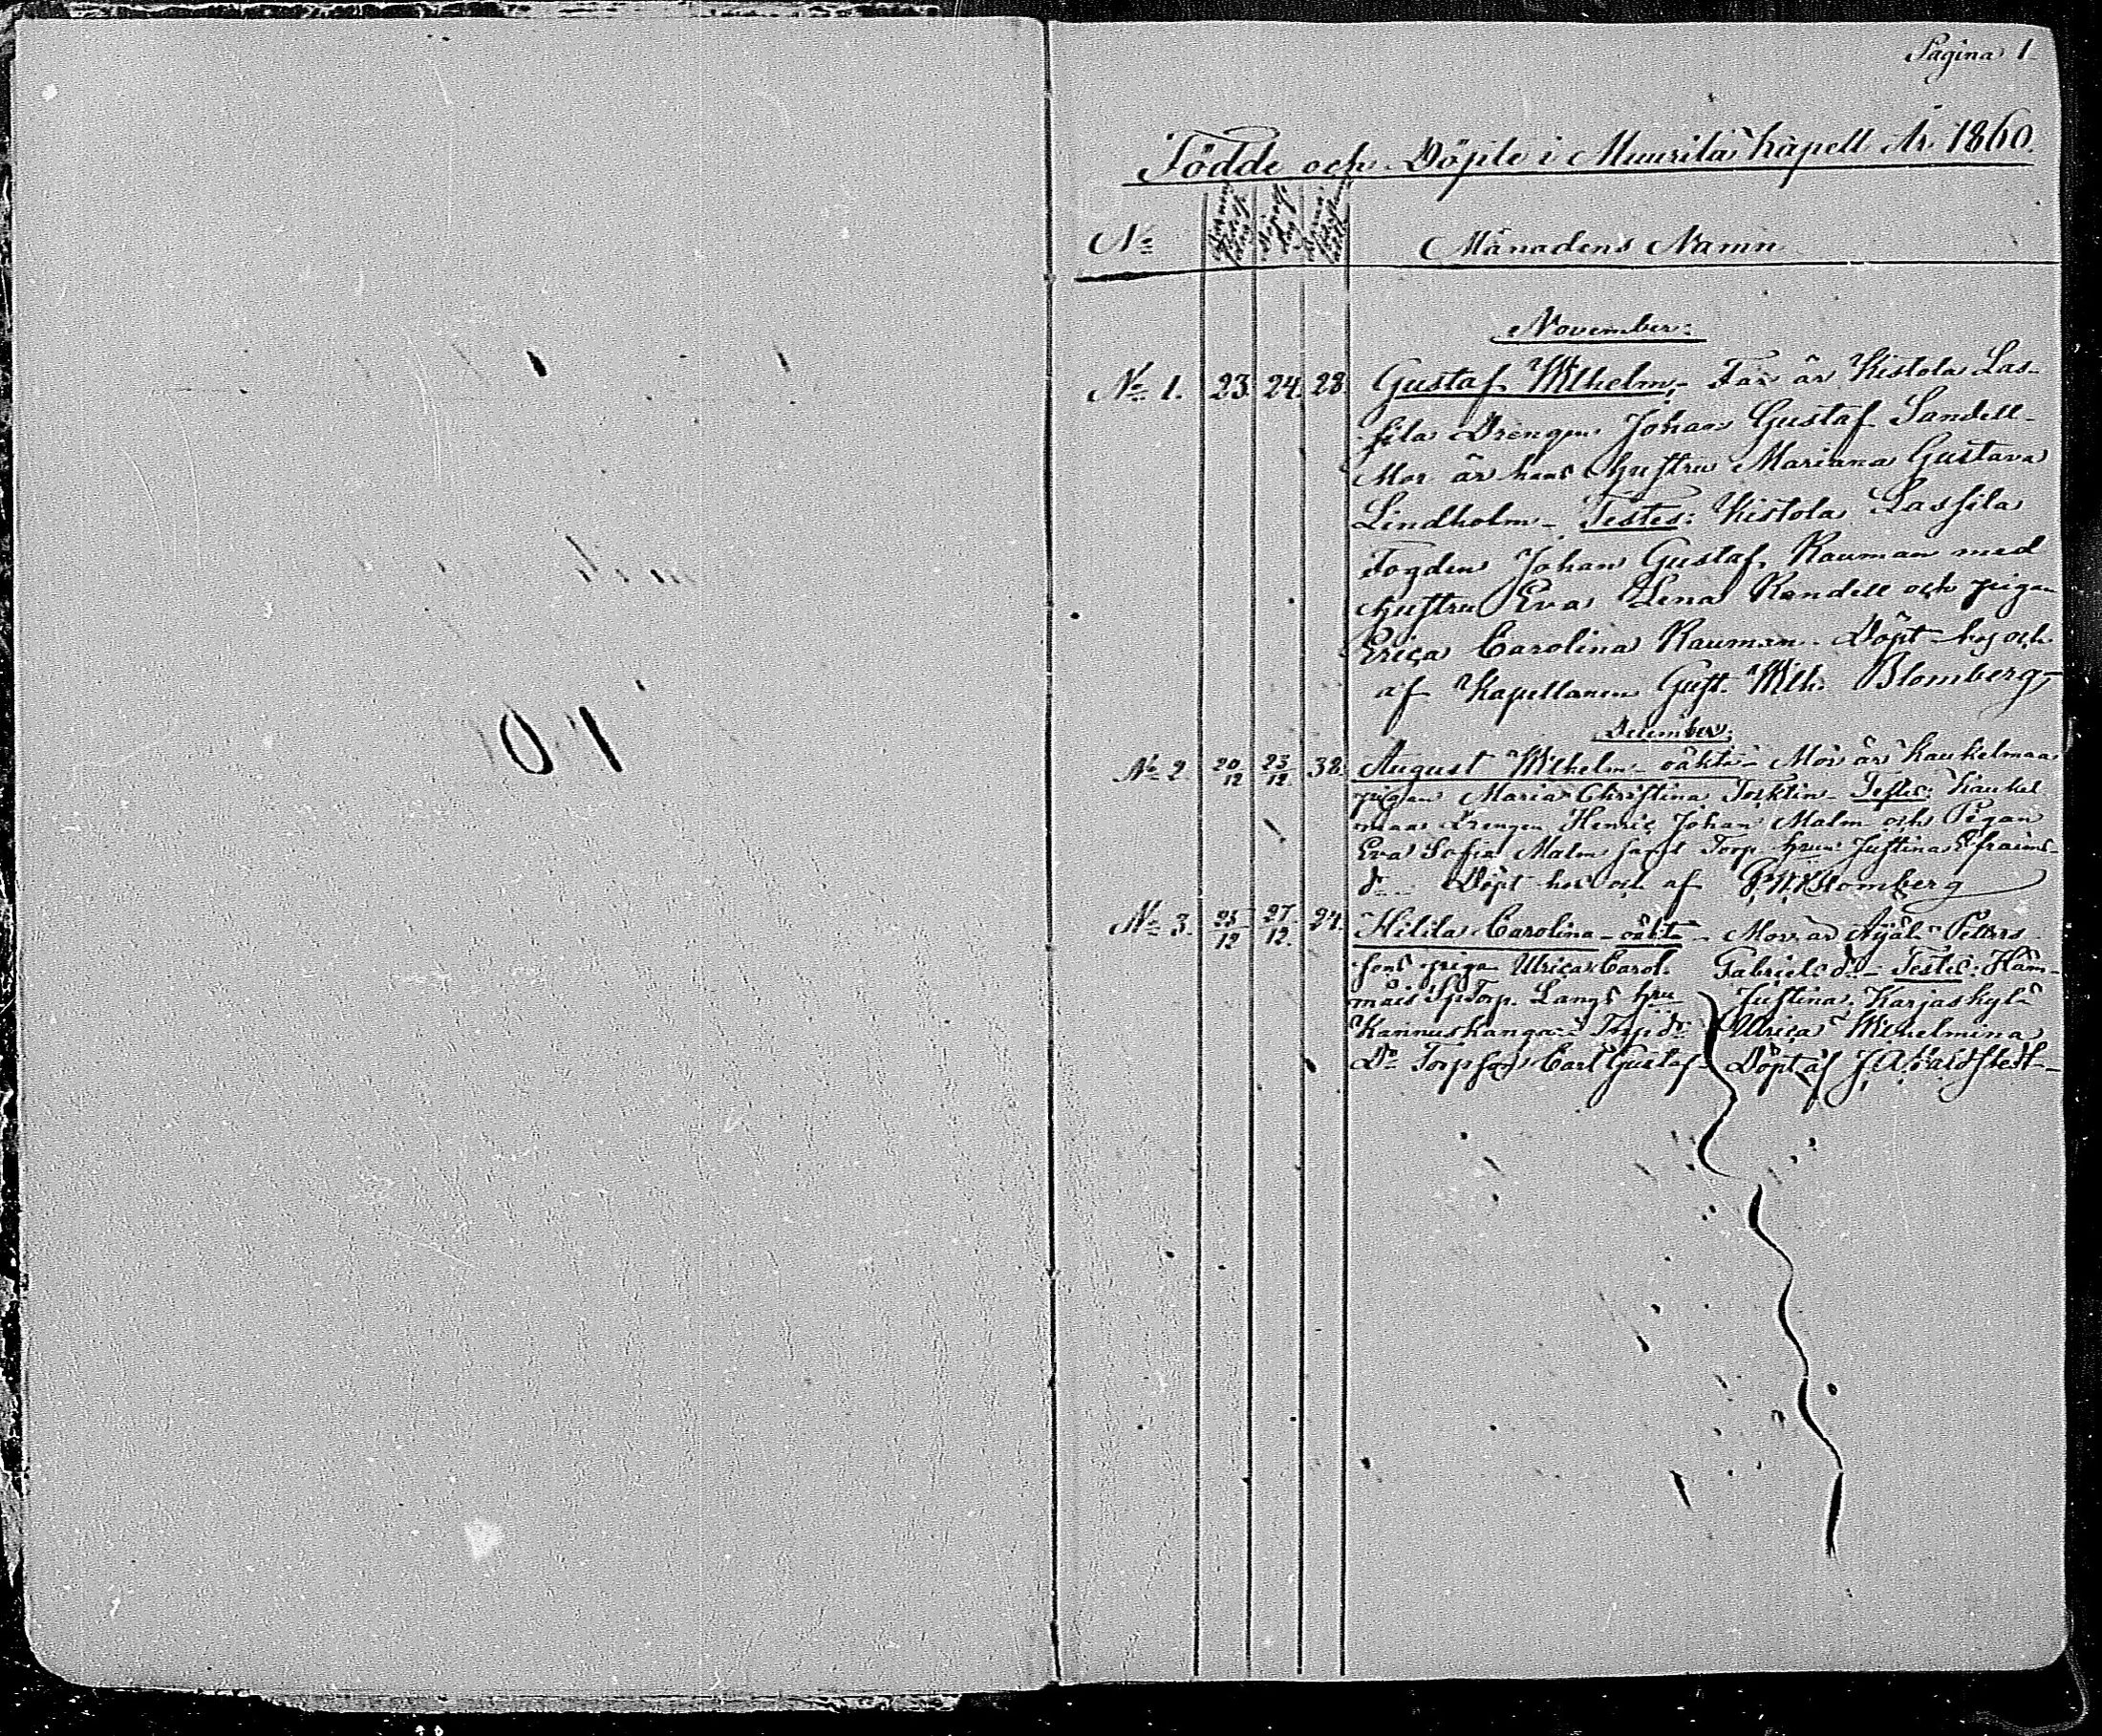 Pagina 1
Födde och Döpte i Muurila Kapell År 1860.
No Månadens Namn
November:
No 1. 23. 24. 28. Gustaf Wilhelm, Far är Kistola Las-
sila Drengen Johan Gustaf Sandell-
Mor är hans hustru Mariana Gustava
Lindholm- Testes: Kistola Lassila
Fogden Johan Gustaf Rauman med
hustru Eva Lena Randell och pigan
Erica Carolina Rauman. Döpt hos och
af Kapellanen Gust. Wilh. Blomberg,
December:
No 2 20/12 23/12. 38. August Wilhelm- oäkta- Mor är Kaukelmaa
pigan Maria Christina Testes: Kaukel
maa Drengen Henric Johan Malm och Pigan
Eva Sofia Malm samt Torp. hrun Justina Efraims-
dr Döpt hos och af G.W. Blomberg
No 3. 25/12 27/12. 24. Hilila Carolina- oäkta- Mor är Äijälä Petters-
sons piga Ulrica Carol. Gabrielsdr- Testes: Häm-
mäis Torp. Längs hru Justina, Karjaskylä
Kannuskanga Torp dr Ulrica Wilhelmina
Do Torp son Carl Gustaf- Döpt af J.A.
01